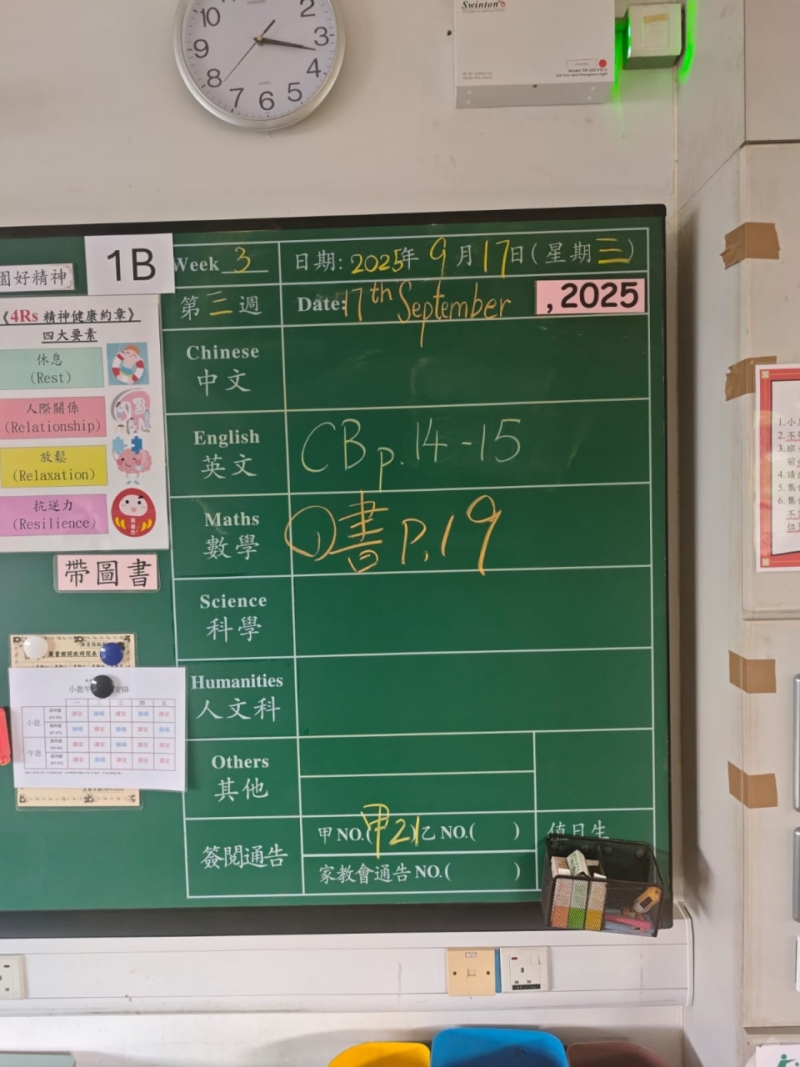 10
2
9
3
8
4
7
6
5
Swinton
園好精神
1B
Week 3
日期: 2025年 9月17日(星期三)
第三週
Date: 17th September , 2025
《4Rs 精神健康約章》
四大要素
休息
(Rest)
人際關係
(Relationship)
放鬆
(Relaxation)
抗逆力
(Resilience)
帶圖書
Chinese
中文
English
英文
CB p.14-15
Maths
數學
① 書 P.19
Science
科學
Humanities
人文科
Others
其他
簽閱通告
甲NO.(甲21)乙NO.( )
家教會通告NO.( )
值日生
小息
午息
一 二 三 四 五